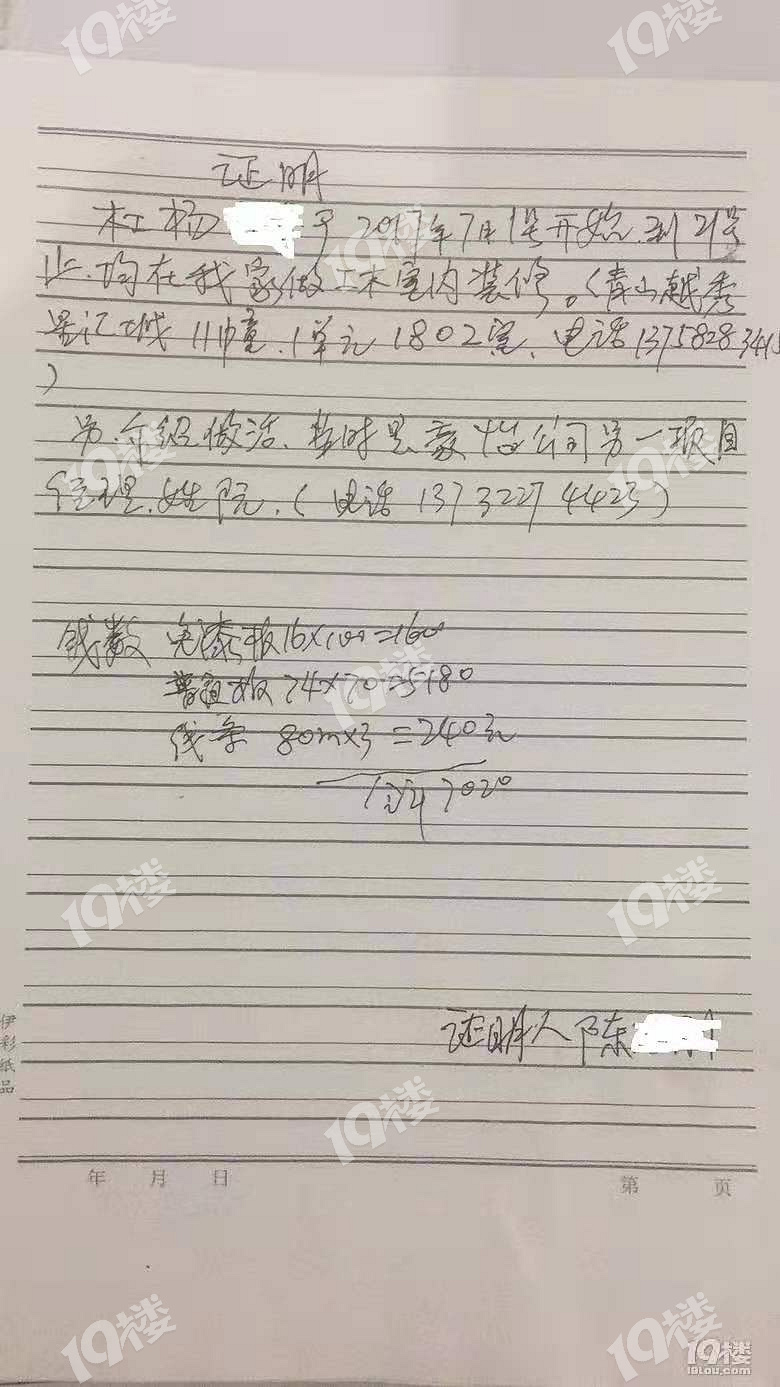 19楼
19楼
证明
木工杨 于2017年7月1号开始.到21号
止.均在我家做土木室内装修。(青山越秀
星汇城11幢.1单元1802室、电话13758283415
)
另.介绍做活.当时是 公司另一项目
经理.姓阮.(电话13732274423)
钱数 免漆板16×100=1600
普通板74×70=5180
线条 80m×3=240元
合计7020
证明人 陈
伊彩纸品
年 月 日
第 页
19楼
19lou.com